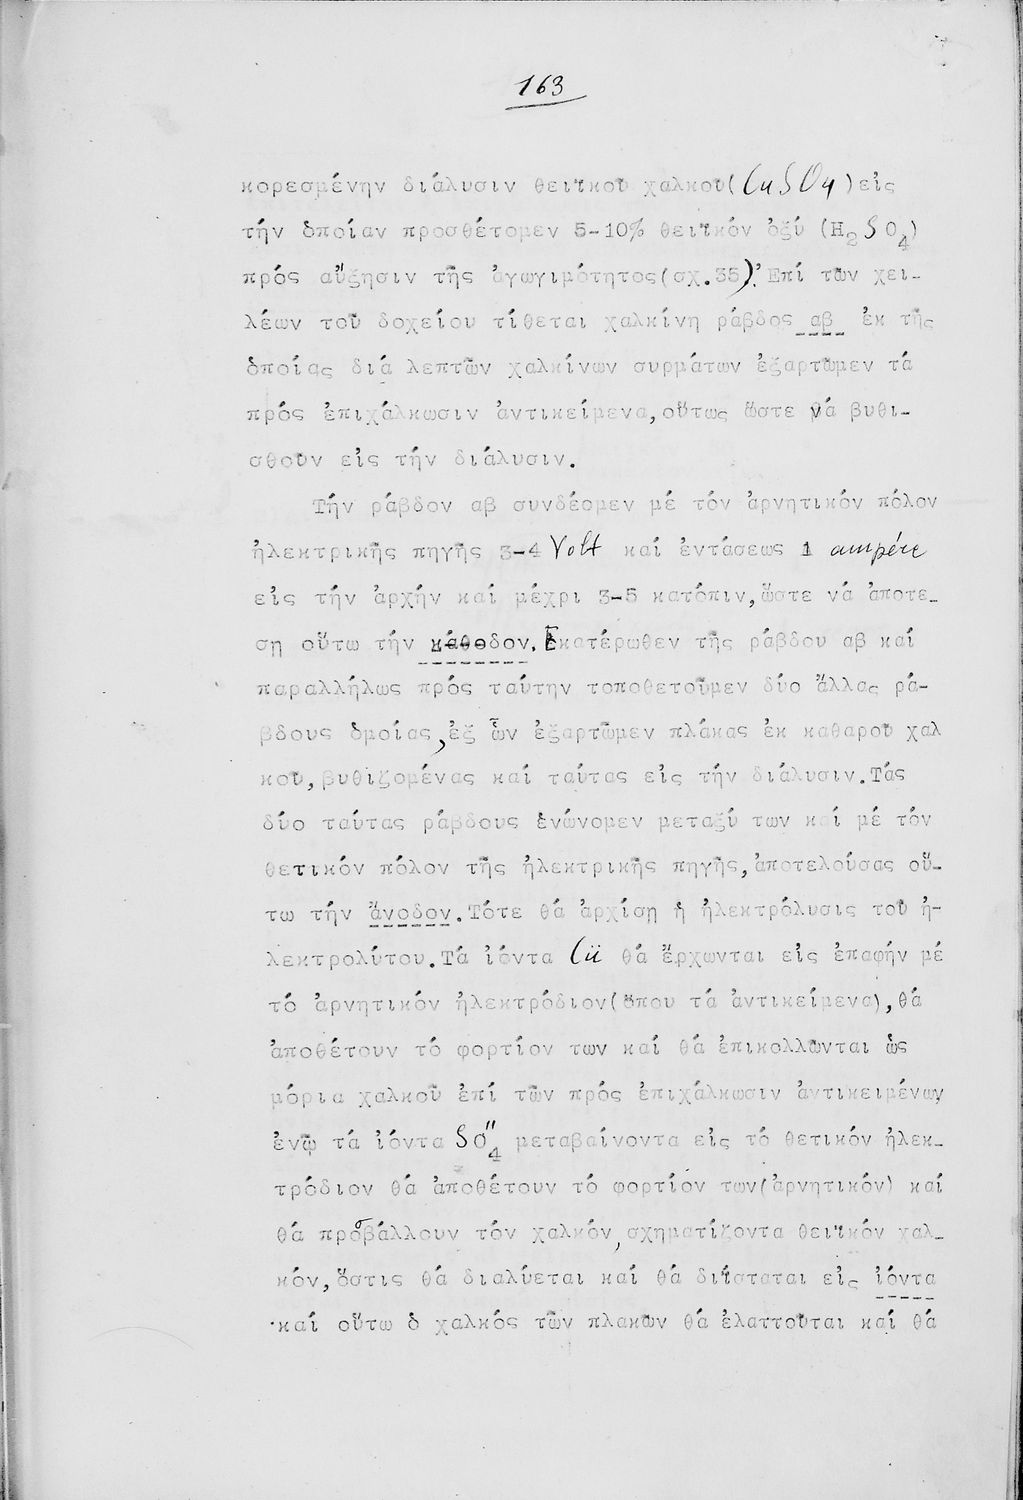 163
κορεσμένην διάλυσιν θειϊκοῦ χαλκοῦ(CuSO4)εἰς
τήν ὁποίαν προσθέτομεν 5-10% θειϊκόν ὀξύ (H2SO4)
πρός αὔξησιν τῆς ἀγωγιμότητος(σχ.35). Ἐπί τῶν χει-
λέων τοῦ δοχείου τίθεται χαλκίνη ράβδος αβ ἐκ τῆς
ὁποίας διά λεπτῶν χαλκίνων συρμάτων ἐξαρτῶμεν τά
πρός ἐπιχάλκωσιν ἀντικείμενα,οὕτως ὥστε νά βυθι-
σθοῦν εἰς τήν διάλυσιν.
Τήν ράβδον αβ συνδέομεν μέ τόν ἀρνητικόν πόλον
ἠλεκτρικῆς πηγῆς 3-4 Volt καί ἐντάσεως 1 ampére
εἰς τήν ἀρχήν καί μέχρι 3-5 κατόπιν,ὥστε νά ἀποτε-
ση οὕτω τήν κάθοδον. Ἑκατέρωθεν τῆς ράβδου αβ καί
παραλλήλως πρός ταύτην τοποθετοῦμεν δύο ἄλλας ρά-
βδους ὁμοίας,ἐξ ὧν ἐξαρτῶμεν πλάκας ἐκ καθαροῦ χαλ
κοῦ,βυθιζομένας καί ταύτας εἰς τήν διάλυσιν.Τάς
δύο ταύτας ράβδους ἑνώνομεν μεταξύ των καί μέ τόν
θετικόν πόλον τῆς ἠλεκτρικῆς πηγῆς,ἀποτελούσας οὕ-
τω τήν ἄνοδον.Τότε θά ἀρχίση ἡ ἠλεκτρόλυσις τοῦ ἠ-
λεκτρολύτου.Τά ἰόντα Cü θά ἔρχωνται εἰς ἐπαφήν μέ
τό ἀρνητικόν ἠλεκτρόδιον(ὅπου τά ἀντικείμενα),θά
ἀποθέτουν τό φορτίον των καί θά ἐπικολλῶνται ὡς
μόρια χαλκοῦ ἐπί τῶν πρός ἐπιχάλκωσιν ἀντικειμένων,
ἐνῷ τά ἰόντα SO4'' μεταβαίνοντα εἰς τό θετικόν ἠλεκ-
τρόδιον θά ἀποθέτουν τό φορτίον των(ἀρνητικόν) καί
θά προσβάλλουν τόν χαλκόν,σχηματίζοντα θειϊκόν χαλ-
κόν,ὅστις θά διαλύεται καί θά διΐσταται εἰς ἰόντα
καί οὕτω ὁ χαλκός τῶν πλακῶν θά ἐλαττοῦται καί θά